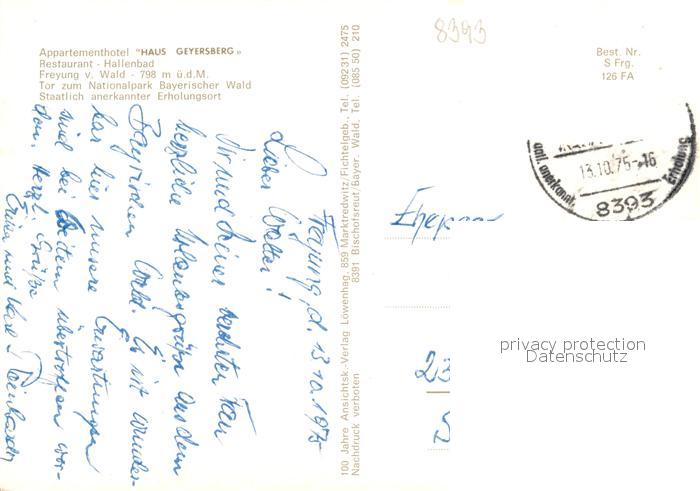 Appartementhotel "HAUS GEYERSBERG"
Restaurant - Hallenbad
Freyung v. Wald - 798 m ü.d.M.
Tor zum Nationalpark Bayerischer Wald
Staatlich anerkannter Erholungsort
Freyung, d. 13.10.1975
Lieber Walter!
Dir und Deiner verehrten Frau
herzliche Urlaubsgrüße aus dem
Bayrischen Wald. Es ist wunder-
bar hier unsere Erwartungen
sind bei weitem übertroffen wor-
den. Herzl. Grüße
und
100 Jahre Ansichtsk.-Verlag Löwenhag, 859 Marktredwitz/Fichtelgeb., Tel. (09231) 2475
8391 Bischofsreut/Bayer. Wald, Tel. (085 50) 210
Nachdruck verboten
8393
Best. Nr.
S Frg.
126 FA
13.10.75-16
anerkannt
Erholung
8393
Ehepaar
23
privacy protection
Datenschutz